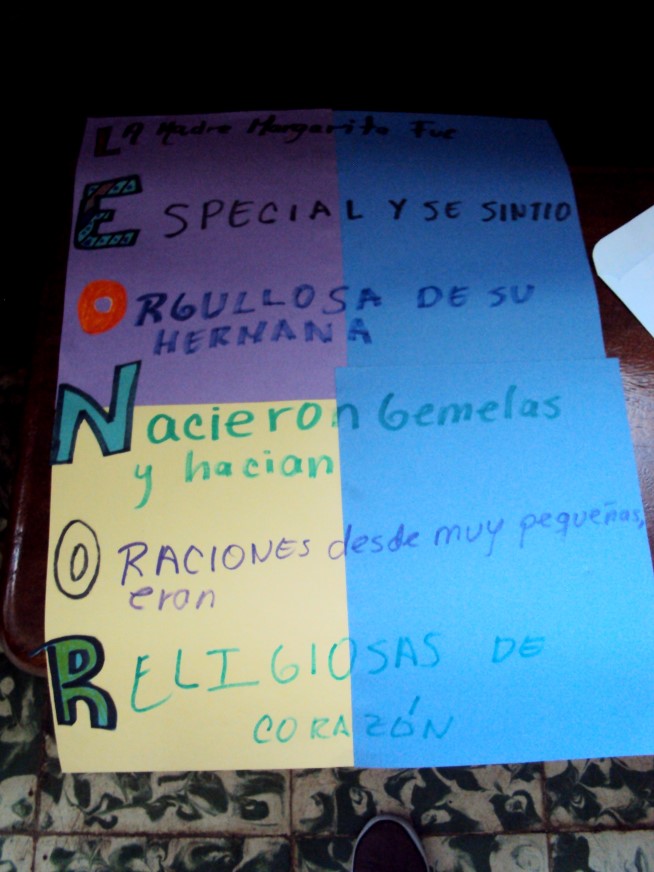 LA Madre Margarita Fue
ESPECIAL Y SE SINTIO
ORGULLOSA DE SU
HERMANA
Nacieron Gemelas
y hacian
ORACIONES desde muy pequeñas,
eran
RELIGIOSAS DE
CORAZÓN